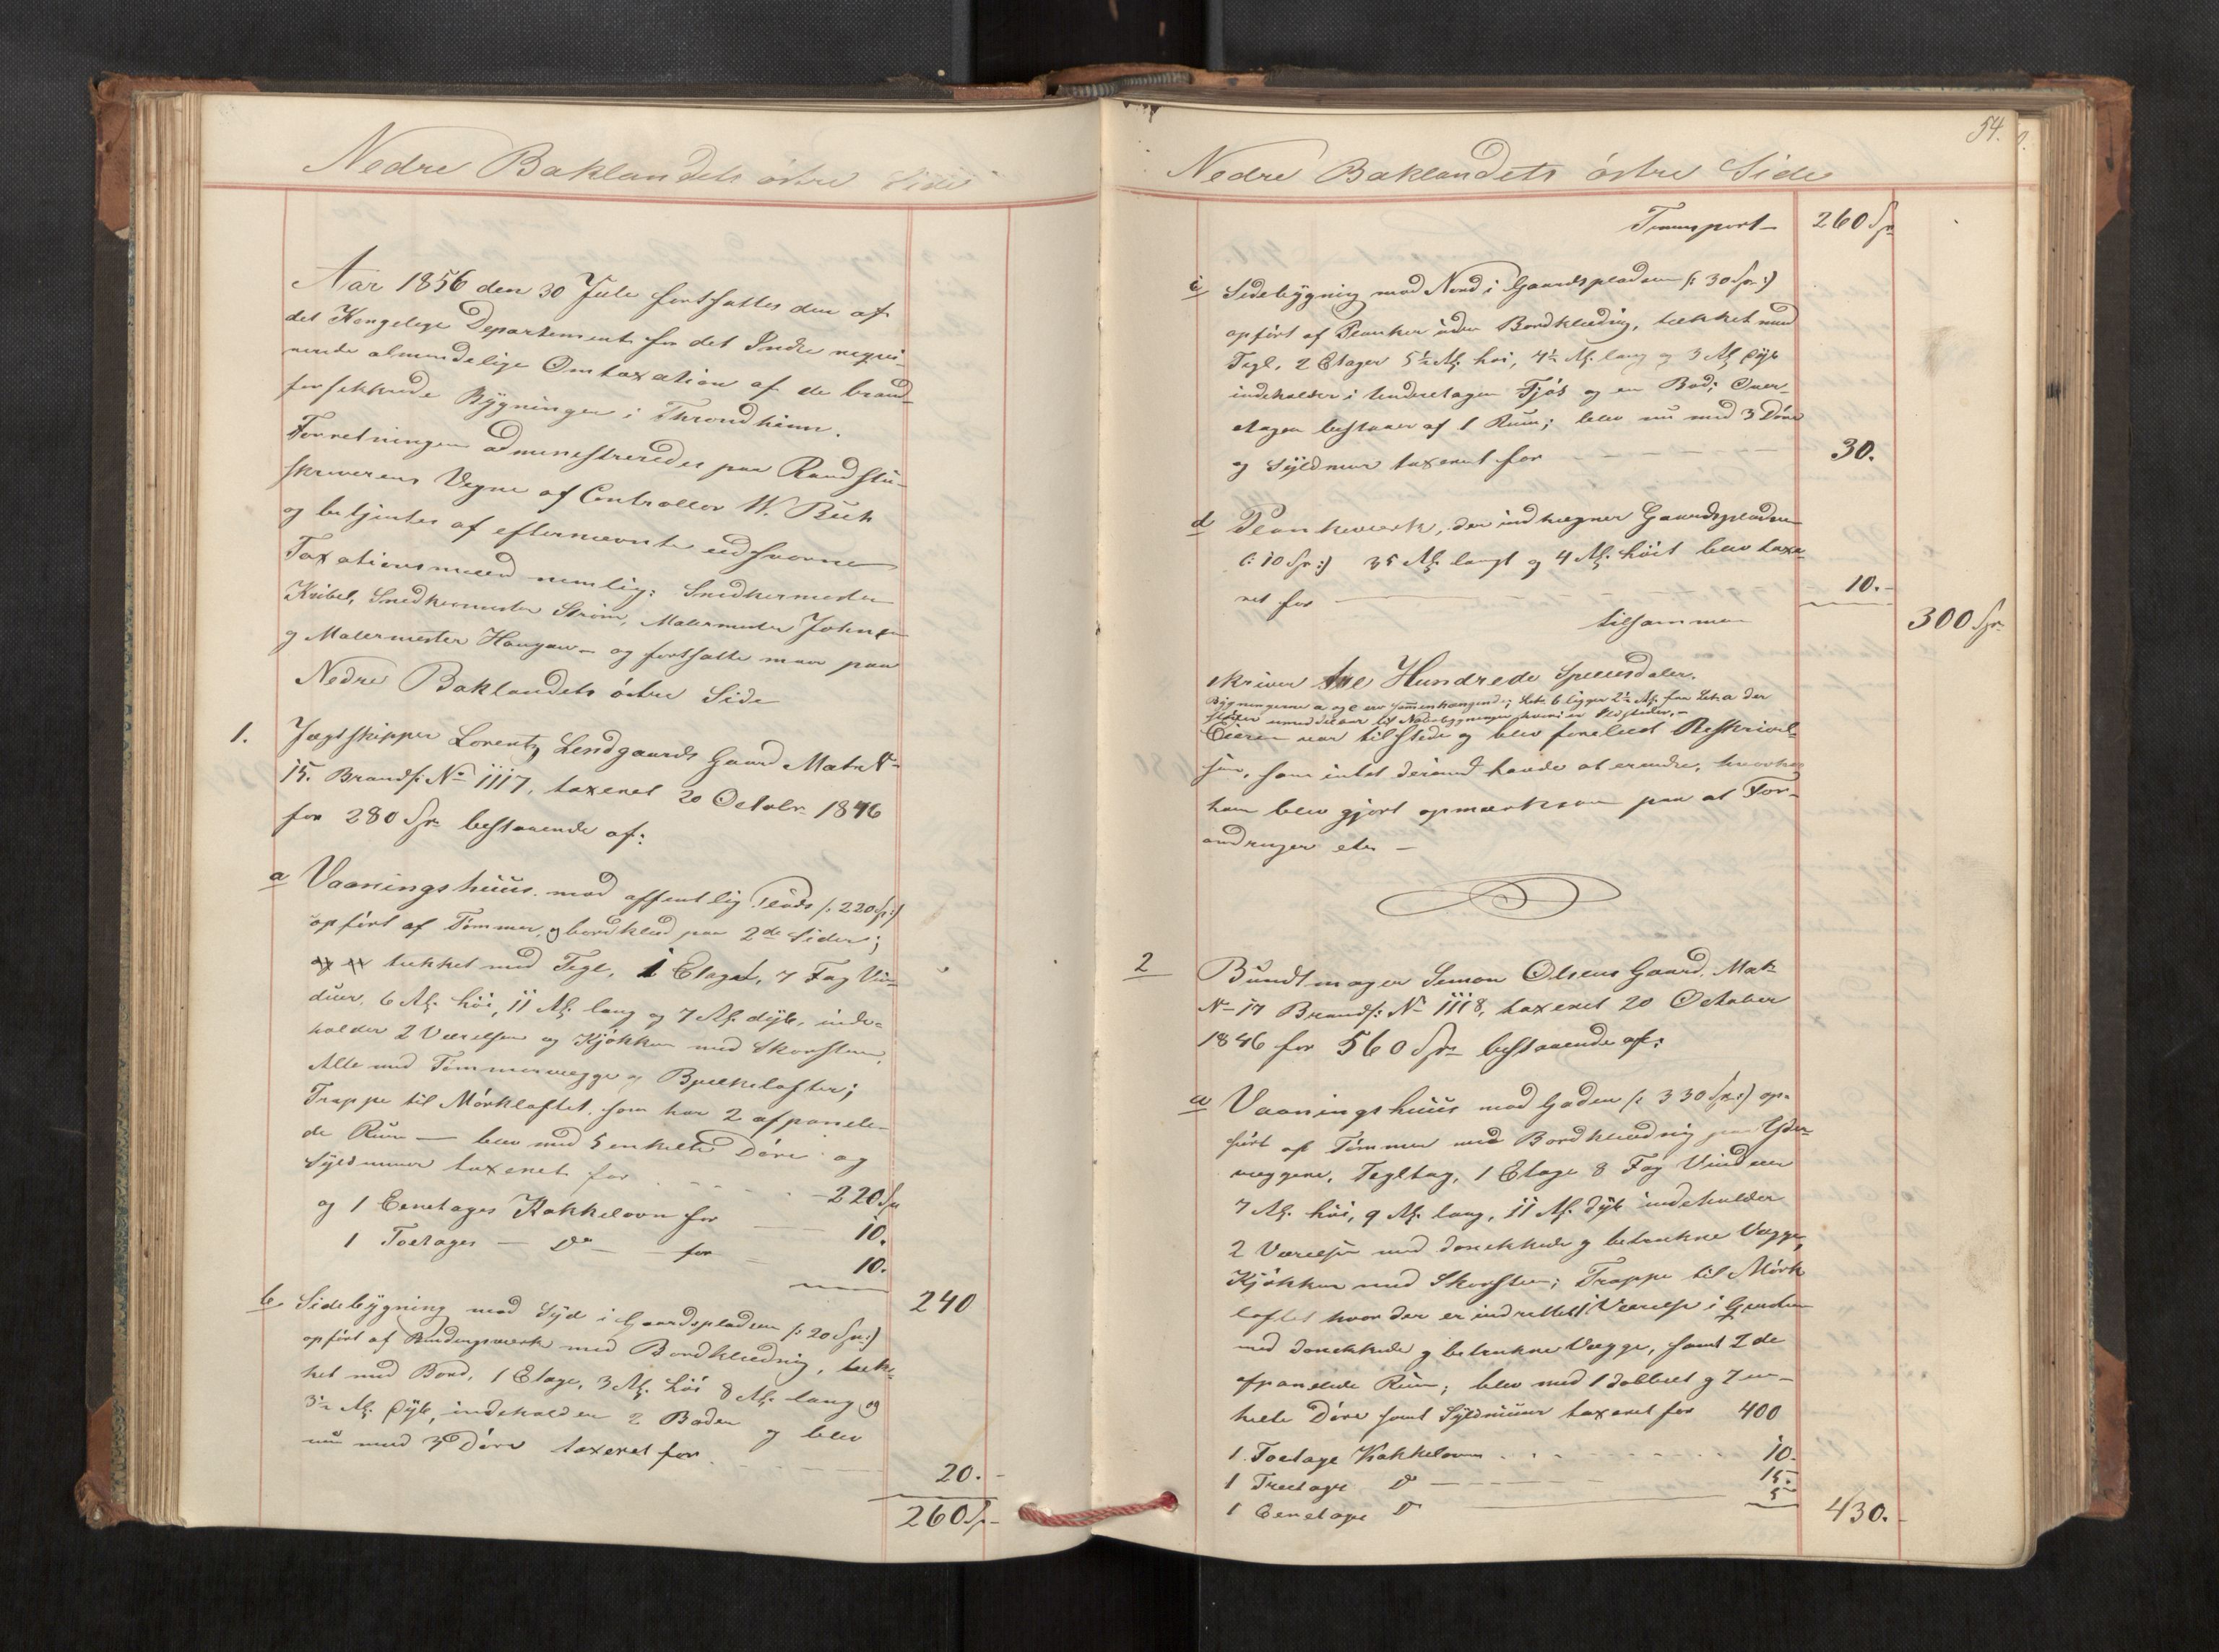 Nedre Baklandets östre Side
Aar 1856 den 30 Juli fortsattes den af
det Kongelige Departement for det Indre reqvi-
rerede almindelige Omtaxation af de brand-
forsikkrede Bygninger i Throndhjem.
Forretningen administreredes paa Raadstu-
skriverens Vegne af Controllör W. Buck
og betjentes af efternævnte eedsvorne
Taxationsmænd nemlig: Snedkermester
Kribel, Snedkermester Ström, Malermester Johnsen
og Malermester Haugan – og fortsatte man paa
Nedre Baklandets östre Side
1. Jægtskipper Lorentz Lendgaards Gaard Matr. N-
15. Brandf: No 1117, taxeret 20 Octobr 1846
for 280 Spr bestaaende af:
a Vaaningshuus mod offentlig Plads (: 220 Sp :)
opfört af Tömmer, og bordklæd paa 2de Sider;
tækket med Tegl, 1 Etage, 7 Fag Vin-
duer, 6 Al. höi, 11 Al. lang og 7 Al. dyb, inde-
holder 2 Værelser og Kjökken med Skorsteen,
Alle med Tömmervægge og Bjelkelofter;
Trappe til Mörkloftet, som har 2 afpanele-
de Rum – blev med 5 enkelte Döre og
Syldmuur taxeret for - - - 220 Spr
og 1 Eenetages Kakkelovn for — 10.
1 Toetages — Do — for — 10.
240
b Sidebygning mod Syd i Gaardspladsen (: 20 Spr :)
opfört af Bindingsværk med Bordklædnig, tæk-
ket med Bord, 1 Etage, 3 Al. höi 8 Al. lang og
3½ Al. dyb, indeholder 2 Boder og blev
nu med 3 Döre taxeret for - - - 20.-
260 Sp-
54.
Nedre Baklandets östre Side
Transport – 260 Spr
c Sidebygning mod Nord i Gaardspladsen (: 30 Spr :)
opfört af Planker uden Bordklædnig, tækket med
Tegl, 2 Etager 5½ Al. höi, 4½ Al. lang og 3 Al. dyb
indeholder i Underetagen Fjös og en Bod; Over-
etagen bestaaer af 1 Rum; blev nu med 3 Döre
og Syldmuur taxeret for - - - 30.
d Plankeværk, der indhegner Gaardspladsen
(: 10 Spr :) 35 Al. langt og 4 Al. höit blev taxe-
ret for — 10.-
tilsammen 300 Spr
skriver tre Hundrede Speciesdaler.
Bygningerne a og c ere sammenhængende; Litr. b ligger 2½ Al. fra Litr. a der
stöder umiddelbar til Nabobygninger hvori er Ildsteder. –
Eieren var tilstede og blev forelæst Beskrivel-
sen, som intet derimod havde at erindre, hvorhos
han blev gjort opmærksom paa at For-
andringer etc –
2 Bundtmager Simon Olsens Gaard. Mat-
N- 17 Brandf: No 1118, taxeret 20 October
1846 for 560 Spr bestaaende af:
a Vaaningshuus mod Gaden (: 330 Spr :) op-
fört af Tömmer med Bordklædnig paa Yder-
væggene, Tegltag, 1 Etage 8 Fag Vinduer
7 Al. höi, 9 Al. lang, 11 Al. dyb indeholder
2 Værelser med donekkede og betrukne Vægge,
Kjökken med Skorsteen; Trappe til Mörk
loftet hvor der er indrettet 1 Værelse i Gavlen
med donekkede og betrukne Vægge, samt 2 de
afpanelede Rum; blev med 1 dobbelt og 7 en-
kelte Döre samt Syldmuur taxeret for 400
1 Toetage Kakkelovn - - - 10.
1 Treetage Do — 15.
1 Eenetage Do — 5
430.-